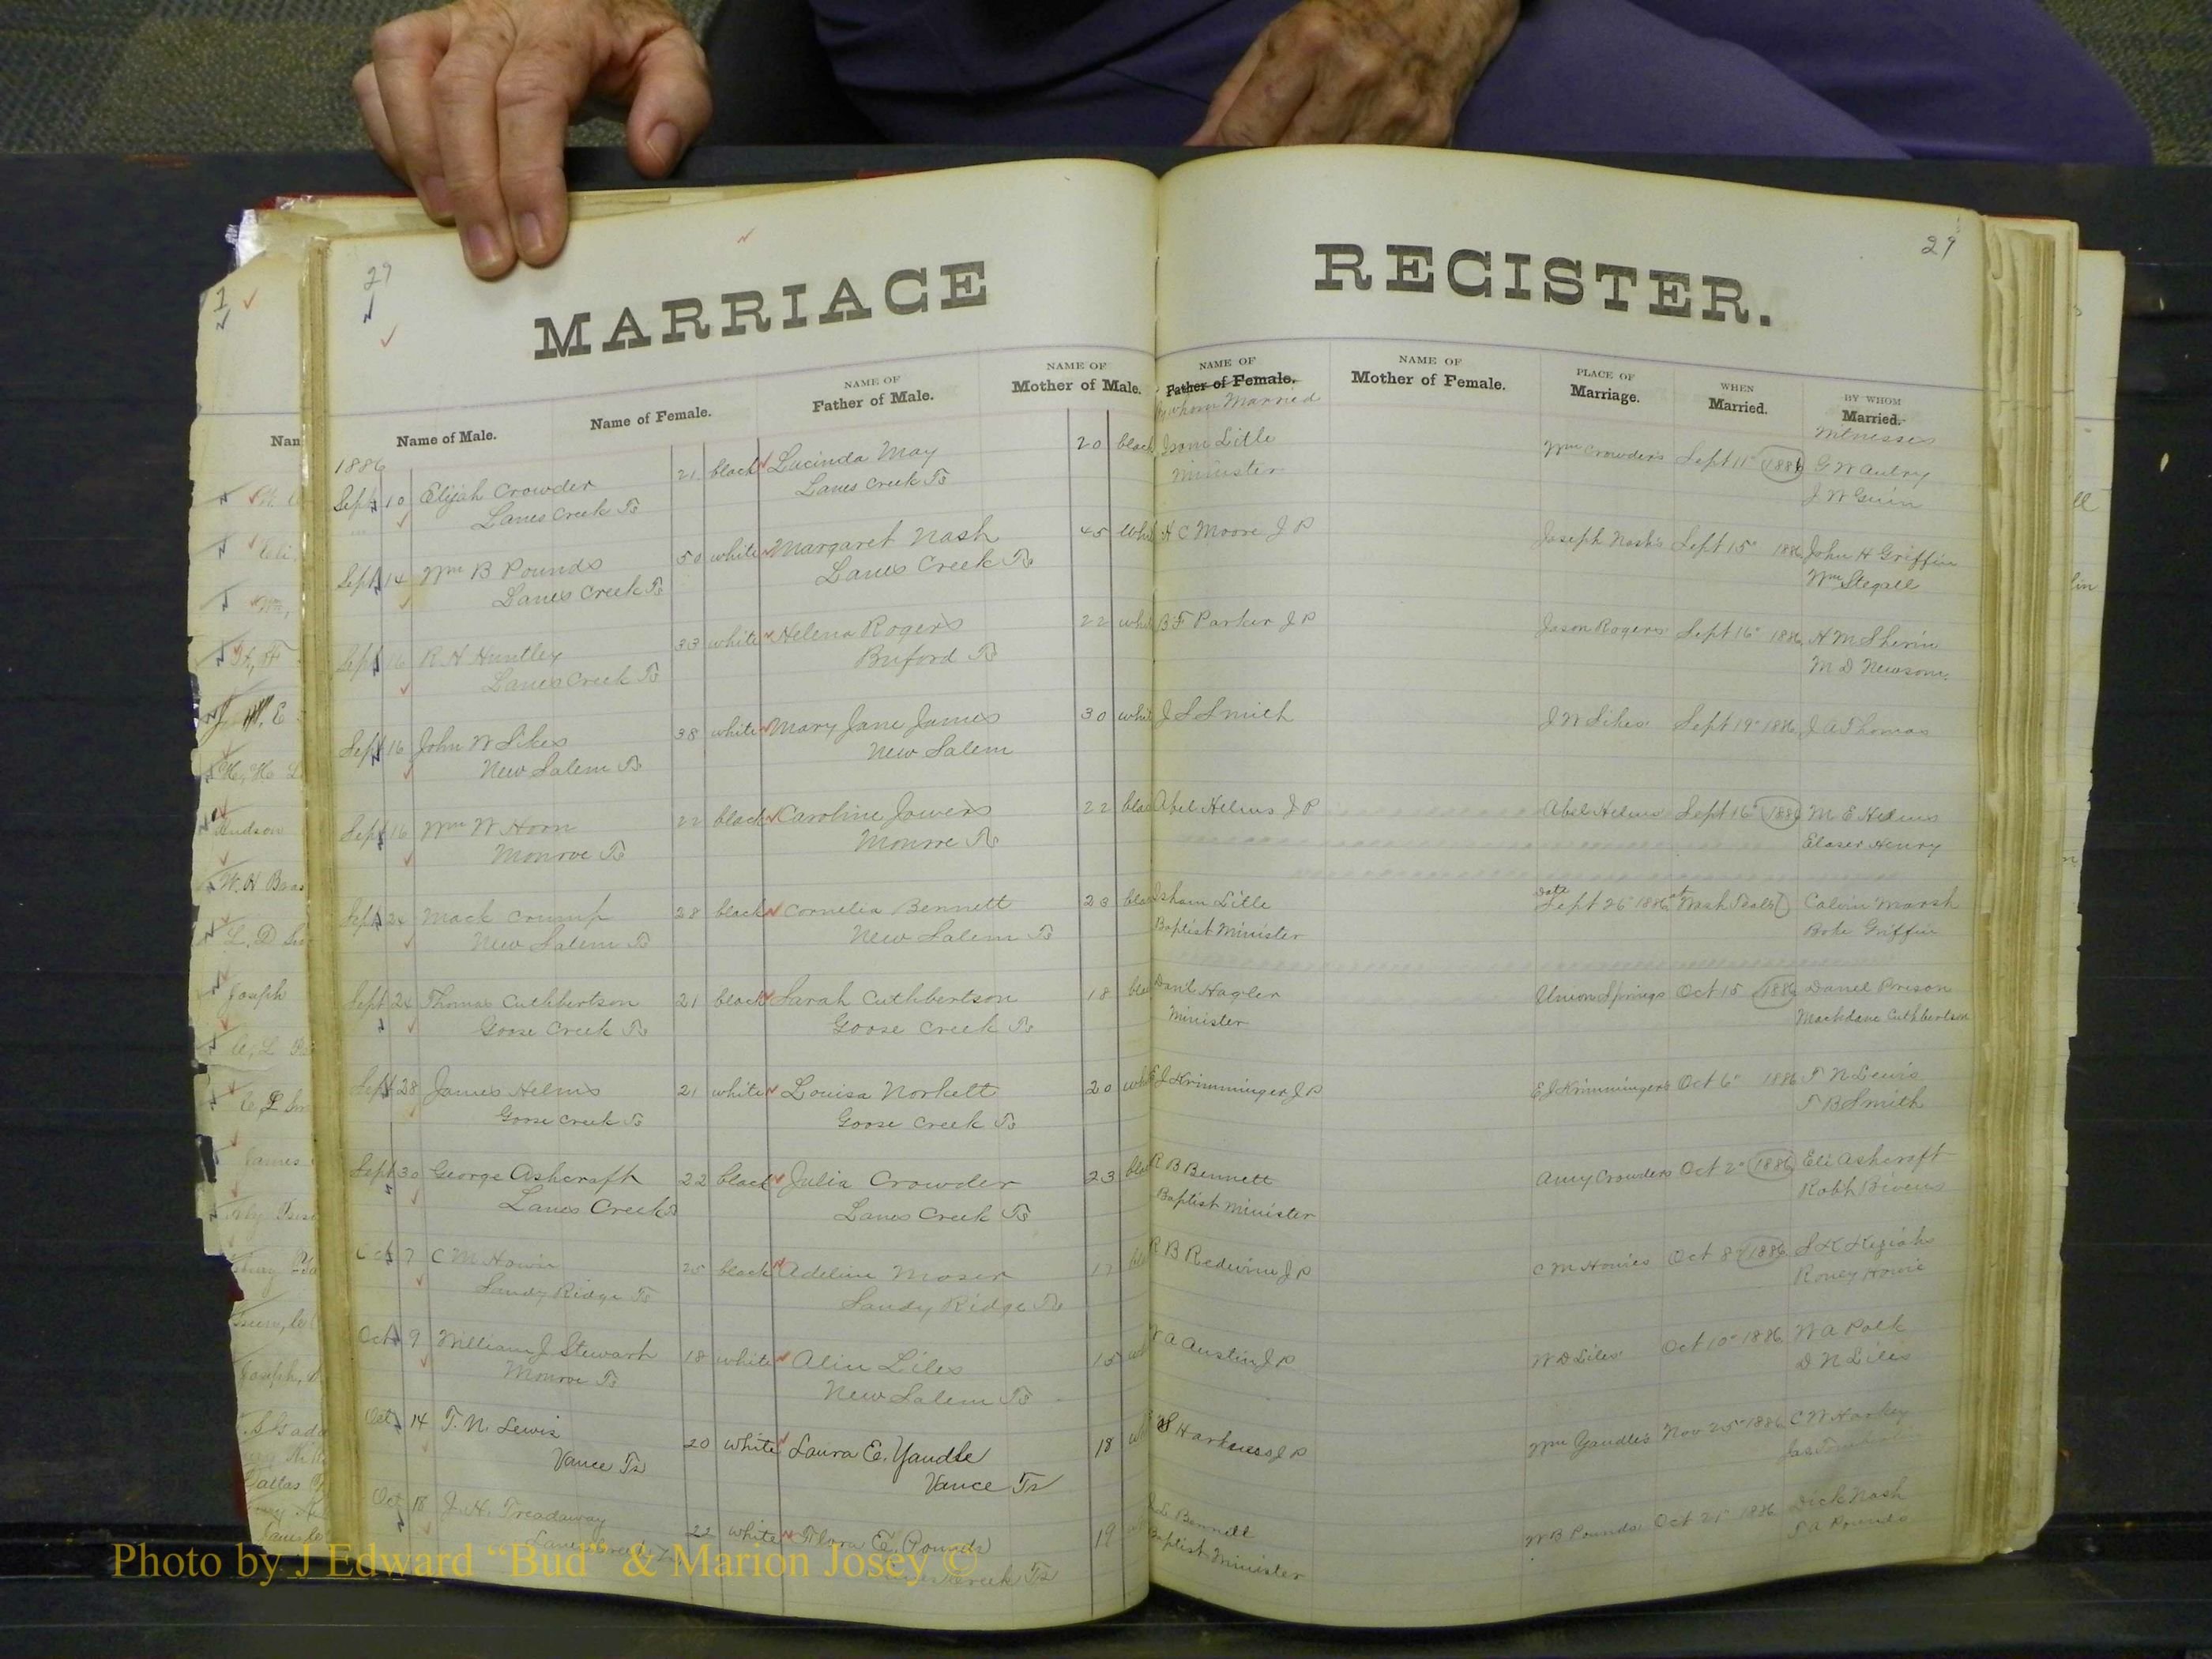 29
MARRIAGE
Name of Male.
Name of Female.
NAME OF
Father of Male.
NAME OF
Mother of Male.
1886
Sept 10 Elijah Crowder 21 black Lucinda May 20 black
Lanes Creek Ts Lanes Creek Ts
Sept 14 Wm B Pounds 50 white Margaret Nash 45 whi
Lanes Creek Ts Lanes Creek Ts
Sept 16 R H Huntley 33 white Helena Rogers 22 whi
Lanes Creek Ts Buford Ts
Sept 16 John W Sikes 38 white Mary Jane James 30 whi
New Salem Ts New Salem
Sept 16 Wm W Horn 22 black Caroline Jowers 22 bla
Monroe Ts Monroe Ts
Sept 24 Mack Crump 28 black Cornelia Bennett 23 bla
New Salem Ts New Salem Ts
Sept 24 Thomas Cuthbertson 21 black Sarah Cuthbertson 18 bla
Goose Creek Ts Goose Creek Ts
Sept 28 James Helms 21 white Louisa Norkett 20 whi
Goose Creek Ts Goose Creek Ts
Sept 30 George Ashcraft 22 black Julia Crowder 23 bla
Lanes Creek Ts Lanes Creek Ts
Oct 7 C M Howie 25 black Adeline Moser 17
Sandy Ridge Ts Sandy Ridge Ts
Oct 9 William J Stewart 18 white Alin Liles 15
Monroe Ts New Salem Ts
Oct 14 T. N. Lewis 20 white Laura E. Yandle 18
Vance Ts Vance Ts
Oct 18 J. H. Treadaway 22 white Flora E. Pounds 19
Lanes Creek Creek Ts
29
REGISTER.
NAME OF
Father of Female.
By whom Married
NAME OF
Mother of Female.
PLACE OF
Marriage.
WHEN
Married.
BY WHOM
Married.
Witnesses
Isom Litle Wm Crowders Sept 11" 1886 G W Autry
Minister J W Guin
H C Moore J P Joseph Nash's Sept 15" 1886 John H Griffin
Wm Stegall
B F Parker J P Jason Rogers Sept 16" 1886 H M Sherin
M D Newsom
J S Smith J W Sikes Sept 19" 1886 J A Thomas
Abel Helms J P Abel Helms Sept 16" 1886 M E Helms
Elaser Henry
Isham Litle date Sept 26 1886 at Calvin Marsh
Baptist Minister Boke Griffin
Danl Hagler Union Springs Oct 15 1886 Danel Prison
Minister Mackdane Cuthbertson
E J Krimminger J P E J Krimmingers Oct 6" 1886 T N Lewis
T B Smith
R B Bennett Amy Crowders Oct 2" 1886 Eli Ashcraft
Baptist Minister Robt Bivens
R B Redwine J P C M Howies Oct 8" 1886 S H Keziah
Roney Howie
A Austin J P W D Liles Oct 10" 1886 W A Polk
D N Liles
Harkness J P Wm Yandle's Nov 25" 1886 C W Harkey
Bennett W B Pounds Oct 21" 1886 Dick Nash
Baptist Minister T A Pounds
Photo by J Edward “Bud” & Marion Josey ©